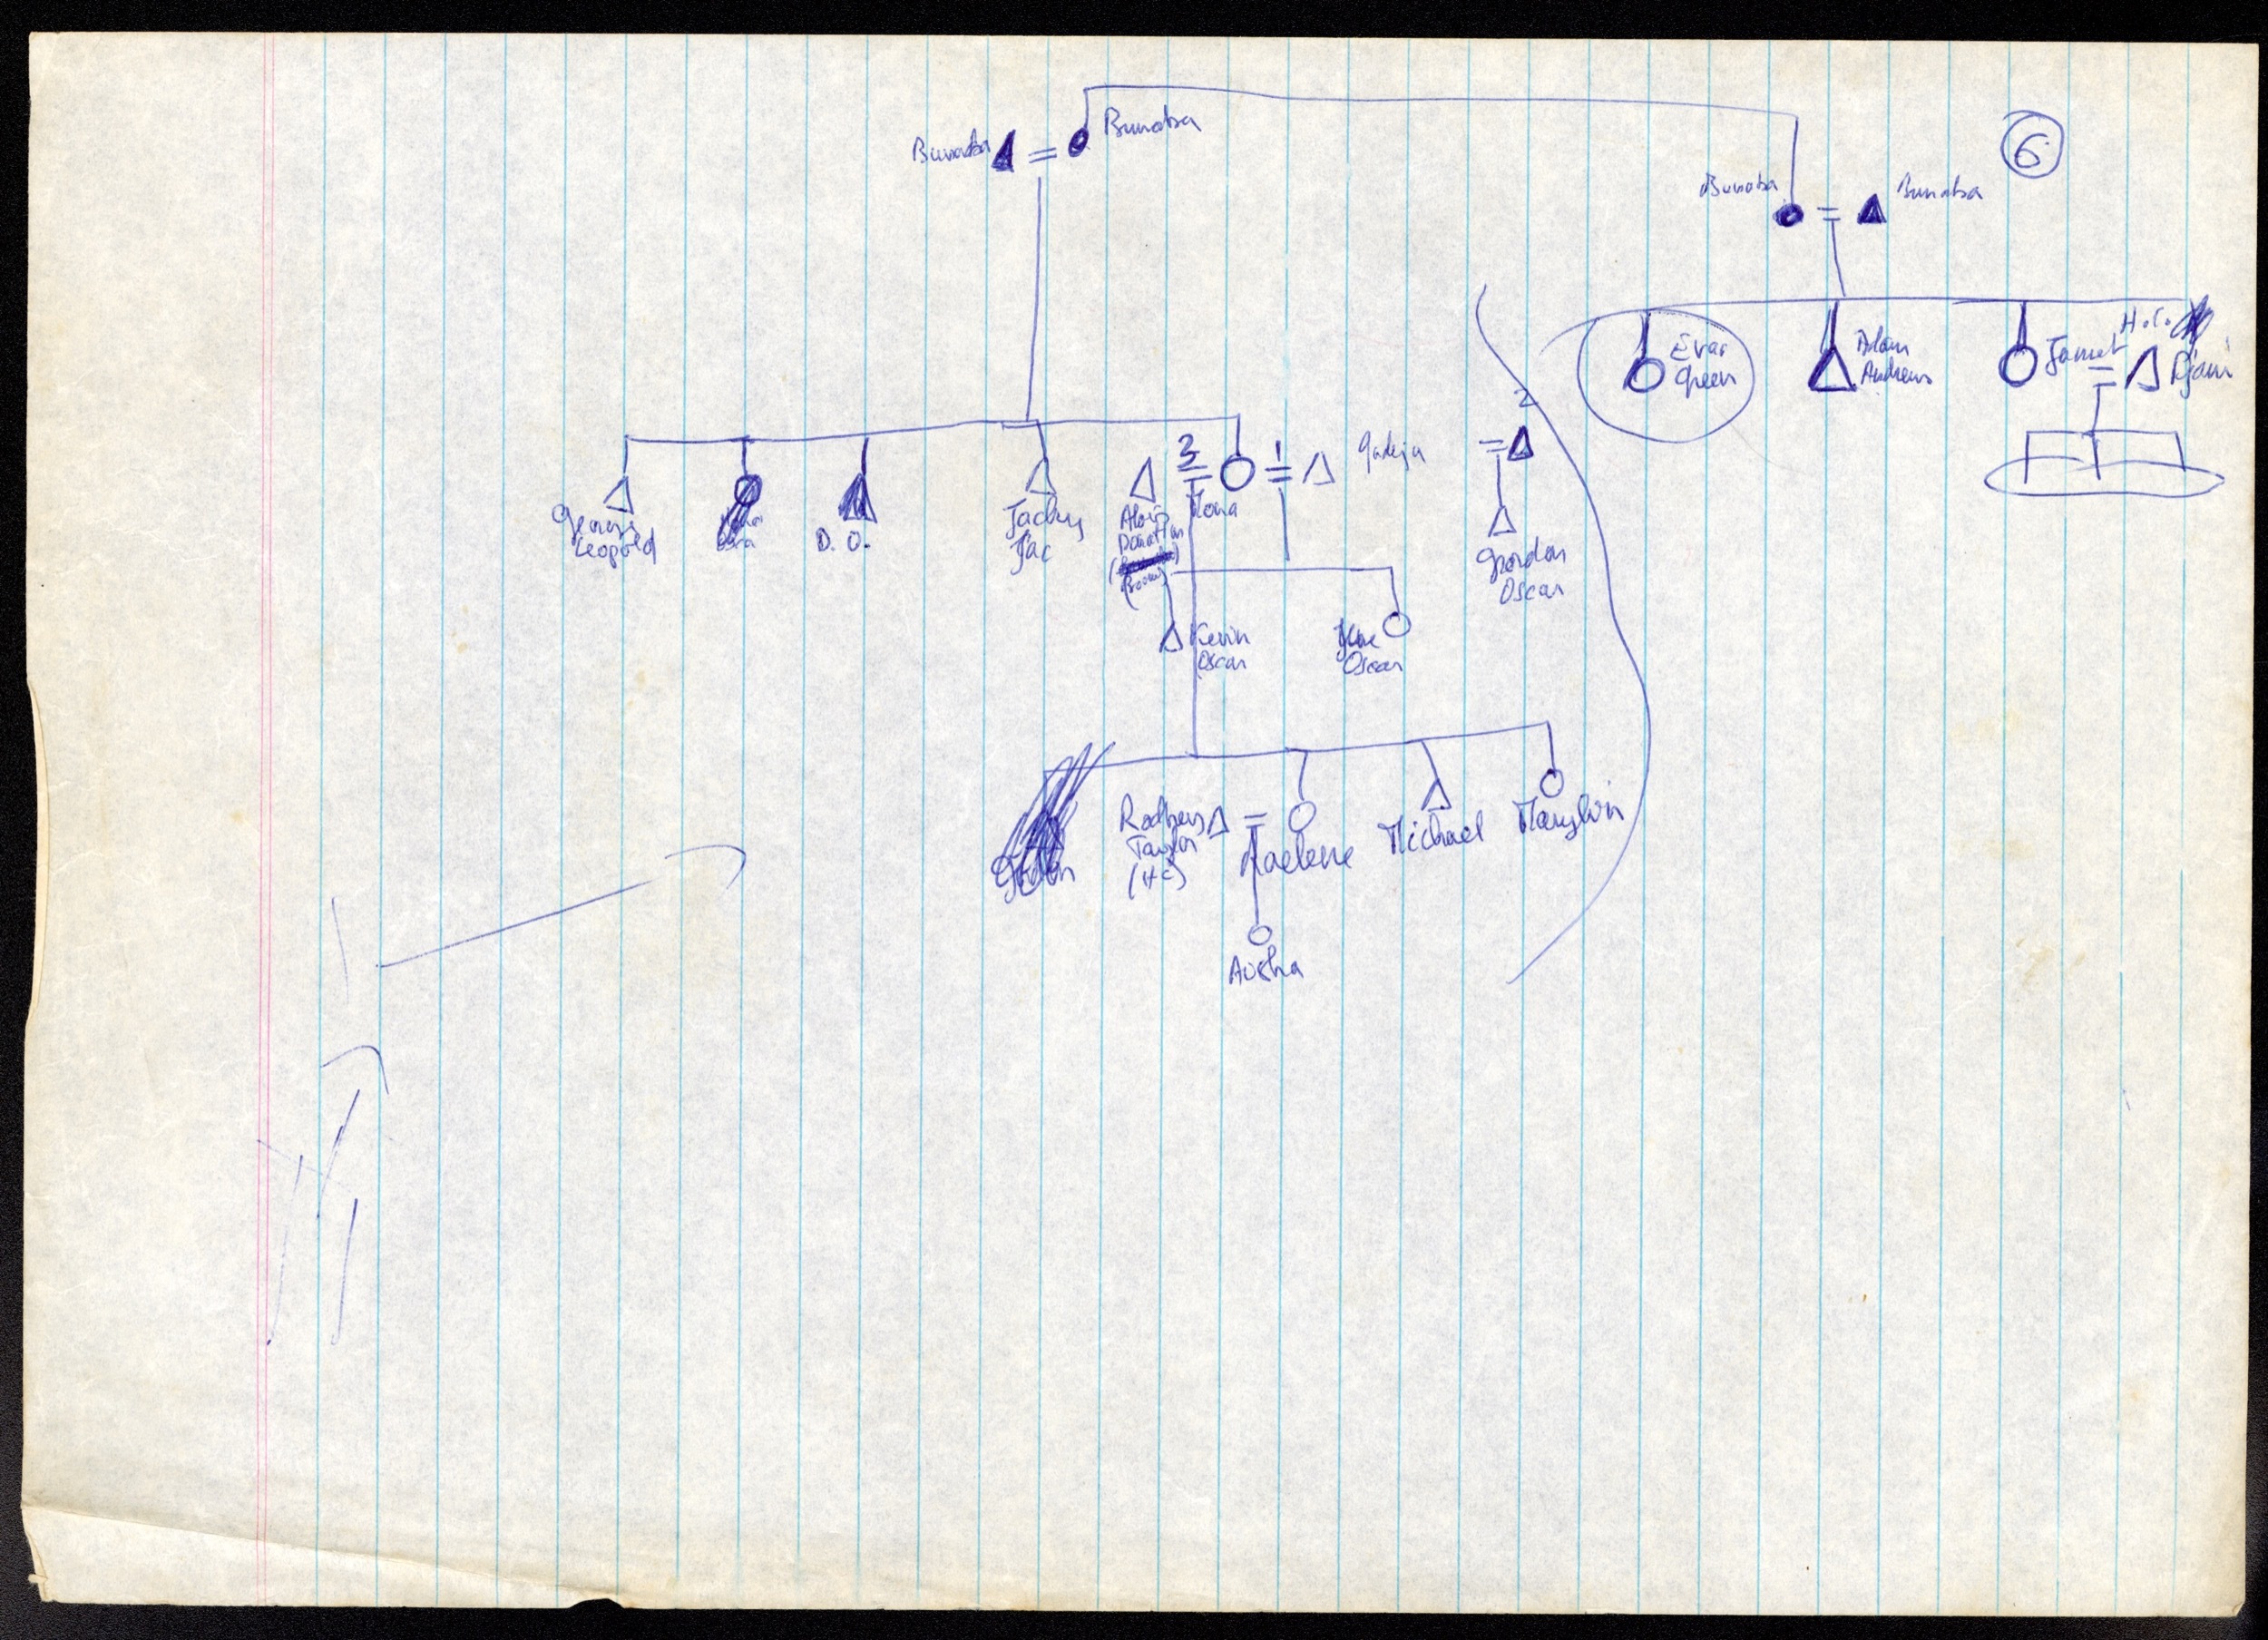 Bunaba
Bunaba
6
Bunaba
Bunaba
Evar
Green
Adam
Andrews
Janet
H.C.
Djani
2
3
1
Gadija
George
Leopold
D. O.
Jacky
Jac
Alois
Donation
(Broome)
Mona
Gordon
Oscar
Kevin
Oscar
Oscar
Rodney
Taylor
(HC)
Raelene
Michael
Marylvin
Aisha